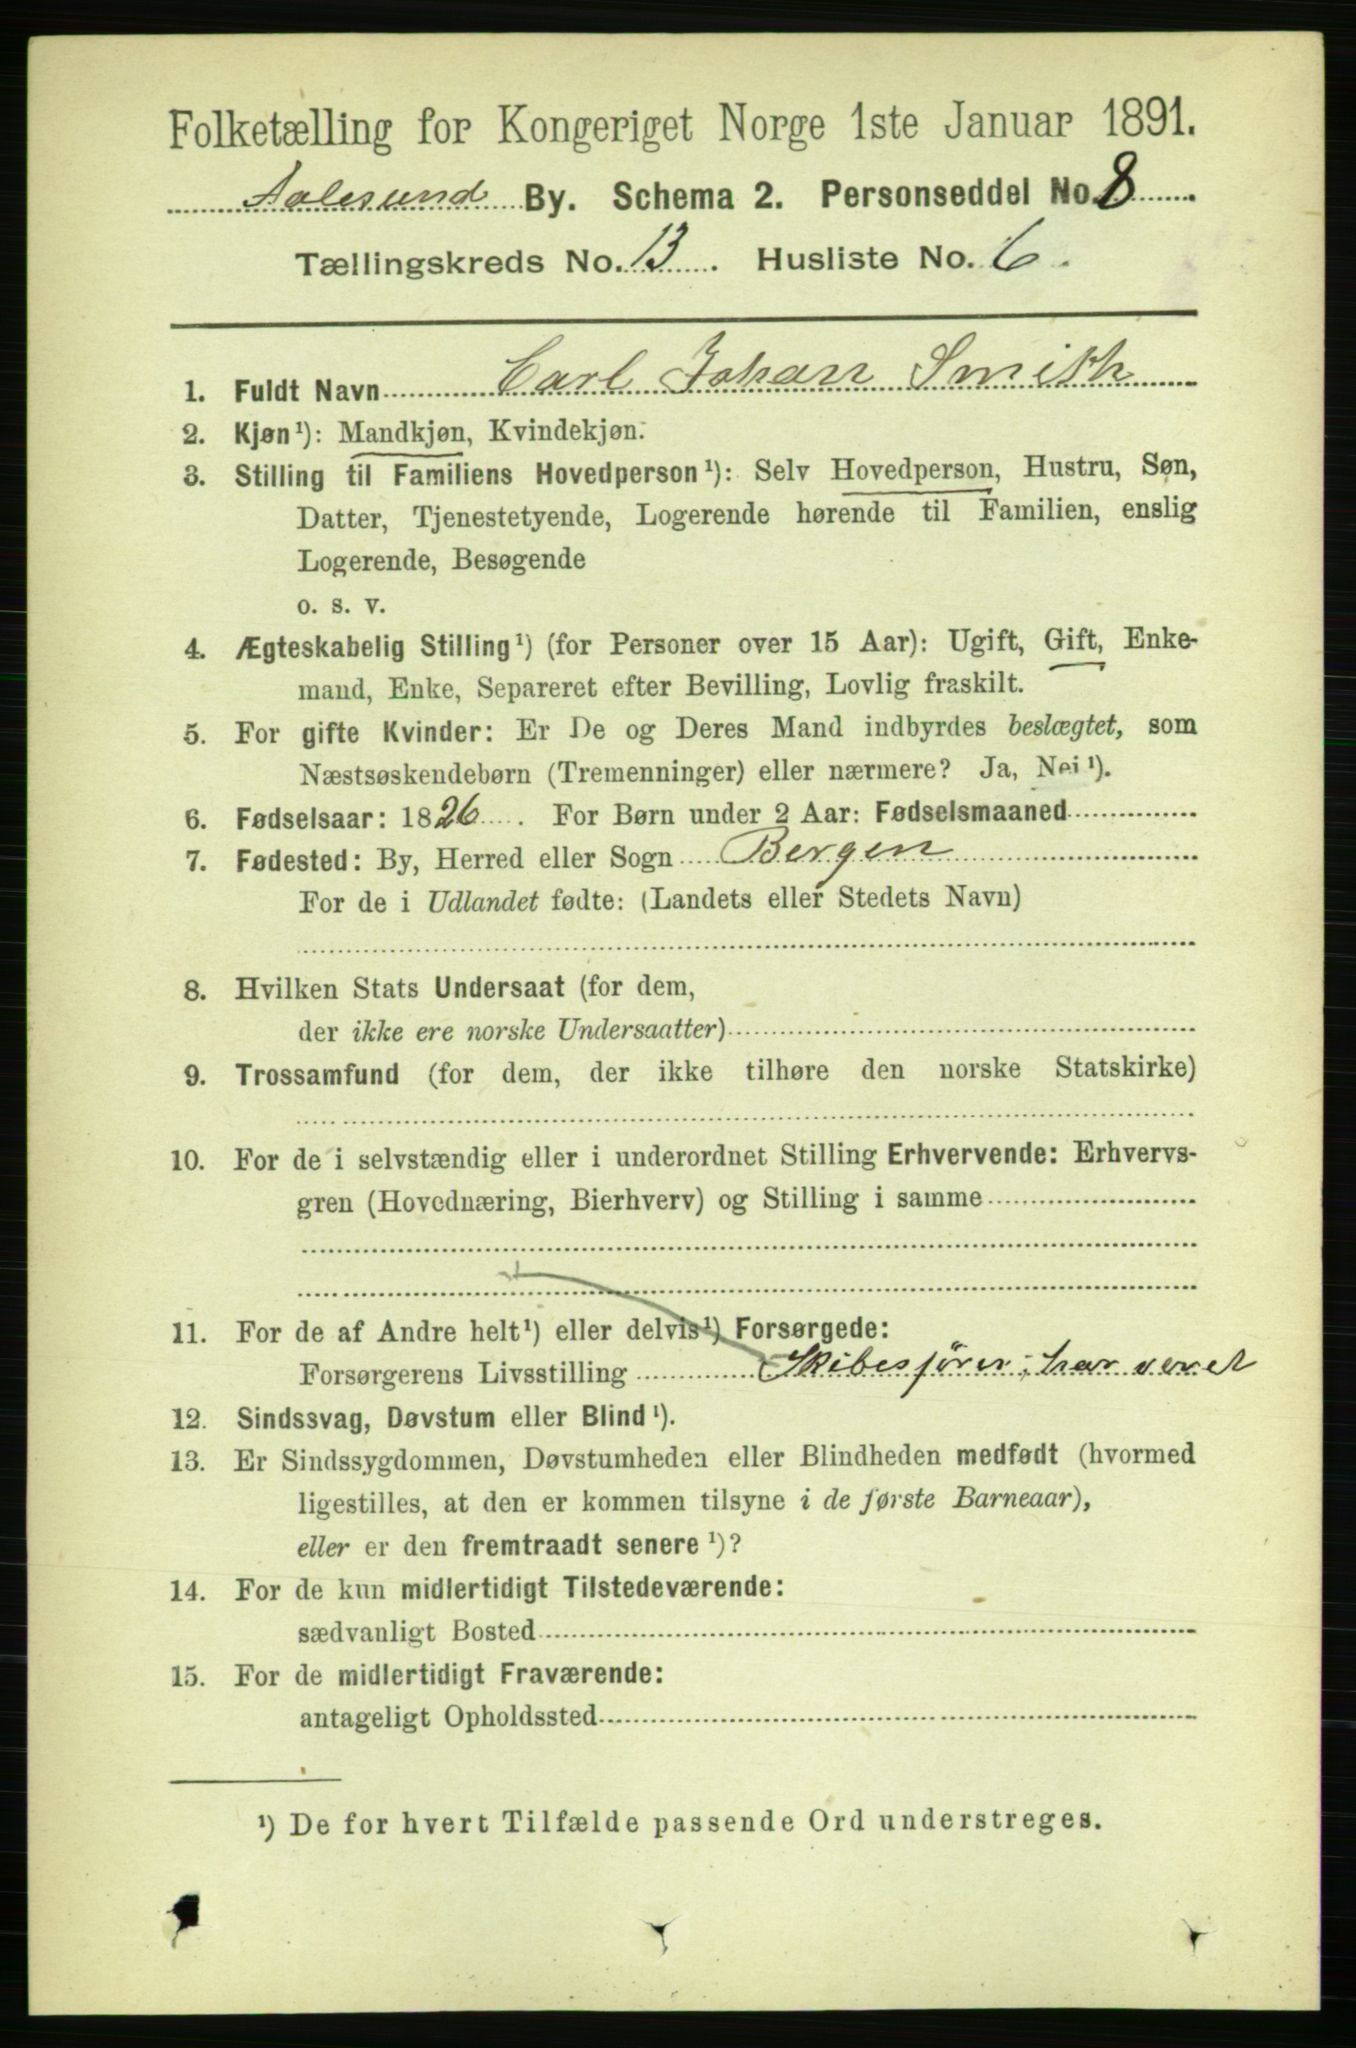 Folketælling for Kongeriget Norge 1ste Januar 1891.
Aalesund By. Schema 2. Personseddel No. 8
Tællingskreds No. 13. Husliste No. 6.
1. Fuldt Navn Carl Johan Smith
2. Kjøn¹): Mandkjøn, Kvindekjøn.
3. Stilling til Familiens Hovedperson¹): Selv Hovedperson, Hustru, Søn,
Datter, Tjenestetyende, Logerende hørende til Familien, enslig
Logerende, Besøgende
o. s. v.
4. Ægteskabelig Stilling¹) (for Personer over 15 Aar): Ugift, Gift, Enke-
mand, Enke, Separeret efter Bevilling, Lovlig fraskilt.
5. For gifte Kvinder: Er De og Deres Mand indbyrdes beslægtet, som
Næstsøskendebørn (Tremenninger) eller nærmere? Ja, Nei¹).
6. Fødselsaar: 1826. For Børn under 2 Aar: Fødselsmaaned
7. Fødested: By, Herred eller Sogn Bergen
For de i Udlandet fødte: (Landets eller Stedets Navn)
8. Hvilken Stats Undersaat (for dem,
der ikke ere norske Undersaatter)
9. Trossamfund (for dem, der ikke tilhøre den norske Statskirke)
10. For de i selvstændig eller i underordnet Stilling Erhvervende: Erhvervs-
gren (Hovednæring, Bierhverv) og Stilling i samme
11. For de af Andre helt¹) eller delvis¹) Forsørgede:
Forsørgerens Livsstilling Skibesfører, har veret
12. Sindssvag, Døvstum eller Blind¹).
13. Er Sindssygdommen, Døvstumheden eller Blindheden medfødt (hvormed
ligestilles, at den er kommen tilsyne i de første Barneaar),
eller er den fremtraadt senere¹)?
14. For de kun midlertidigt Tilstedeværende:
sædvanligt Bosted
15. For de midlertidigt Fraværende:
antageligt Opholdssted
¹) De for hvert Tilfælde passende Ord understreges.